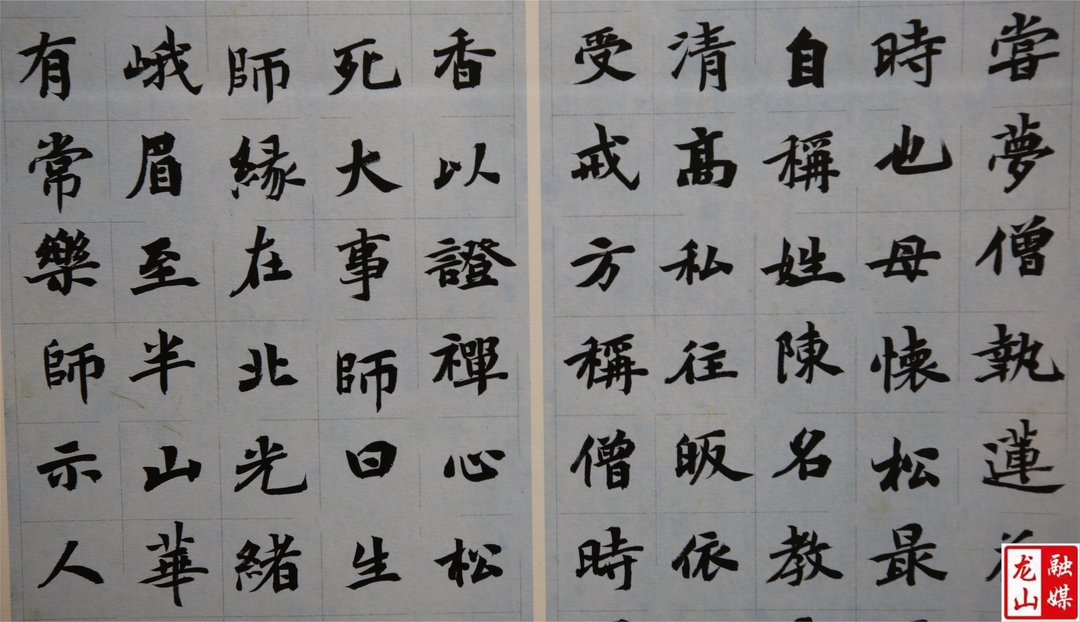 嘗夢僧執蓮
時也母懷松最
自稱姓陳名教
清高私往皈依
受戒方稱僧時
香以證禪心松
死大事師曰生
師緣在北光緒
峨眉至半山華
有常樂師示人
融媒
龙山